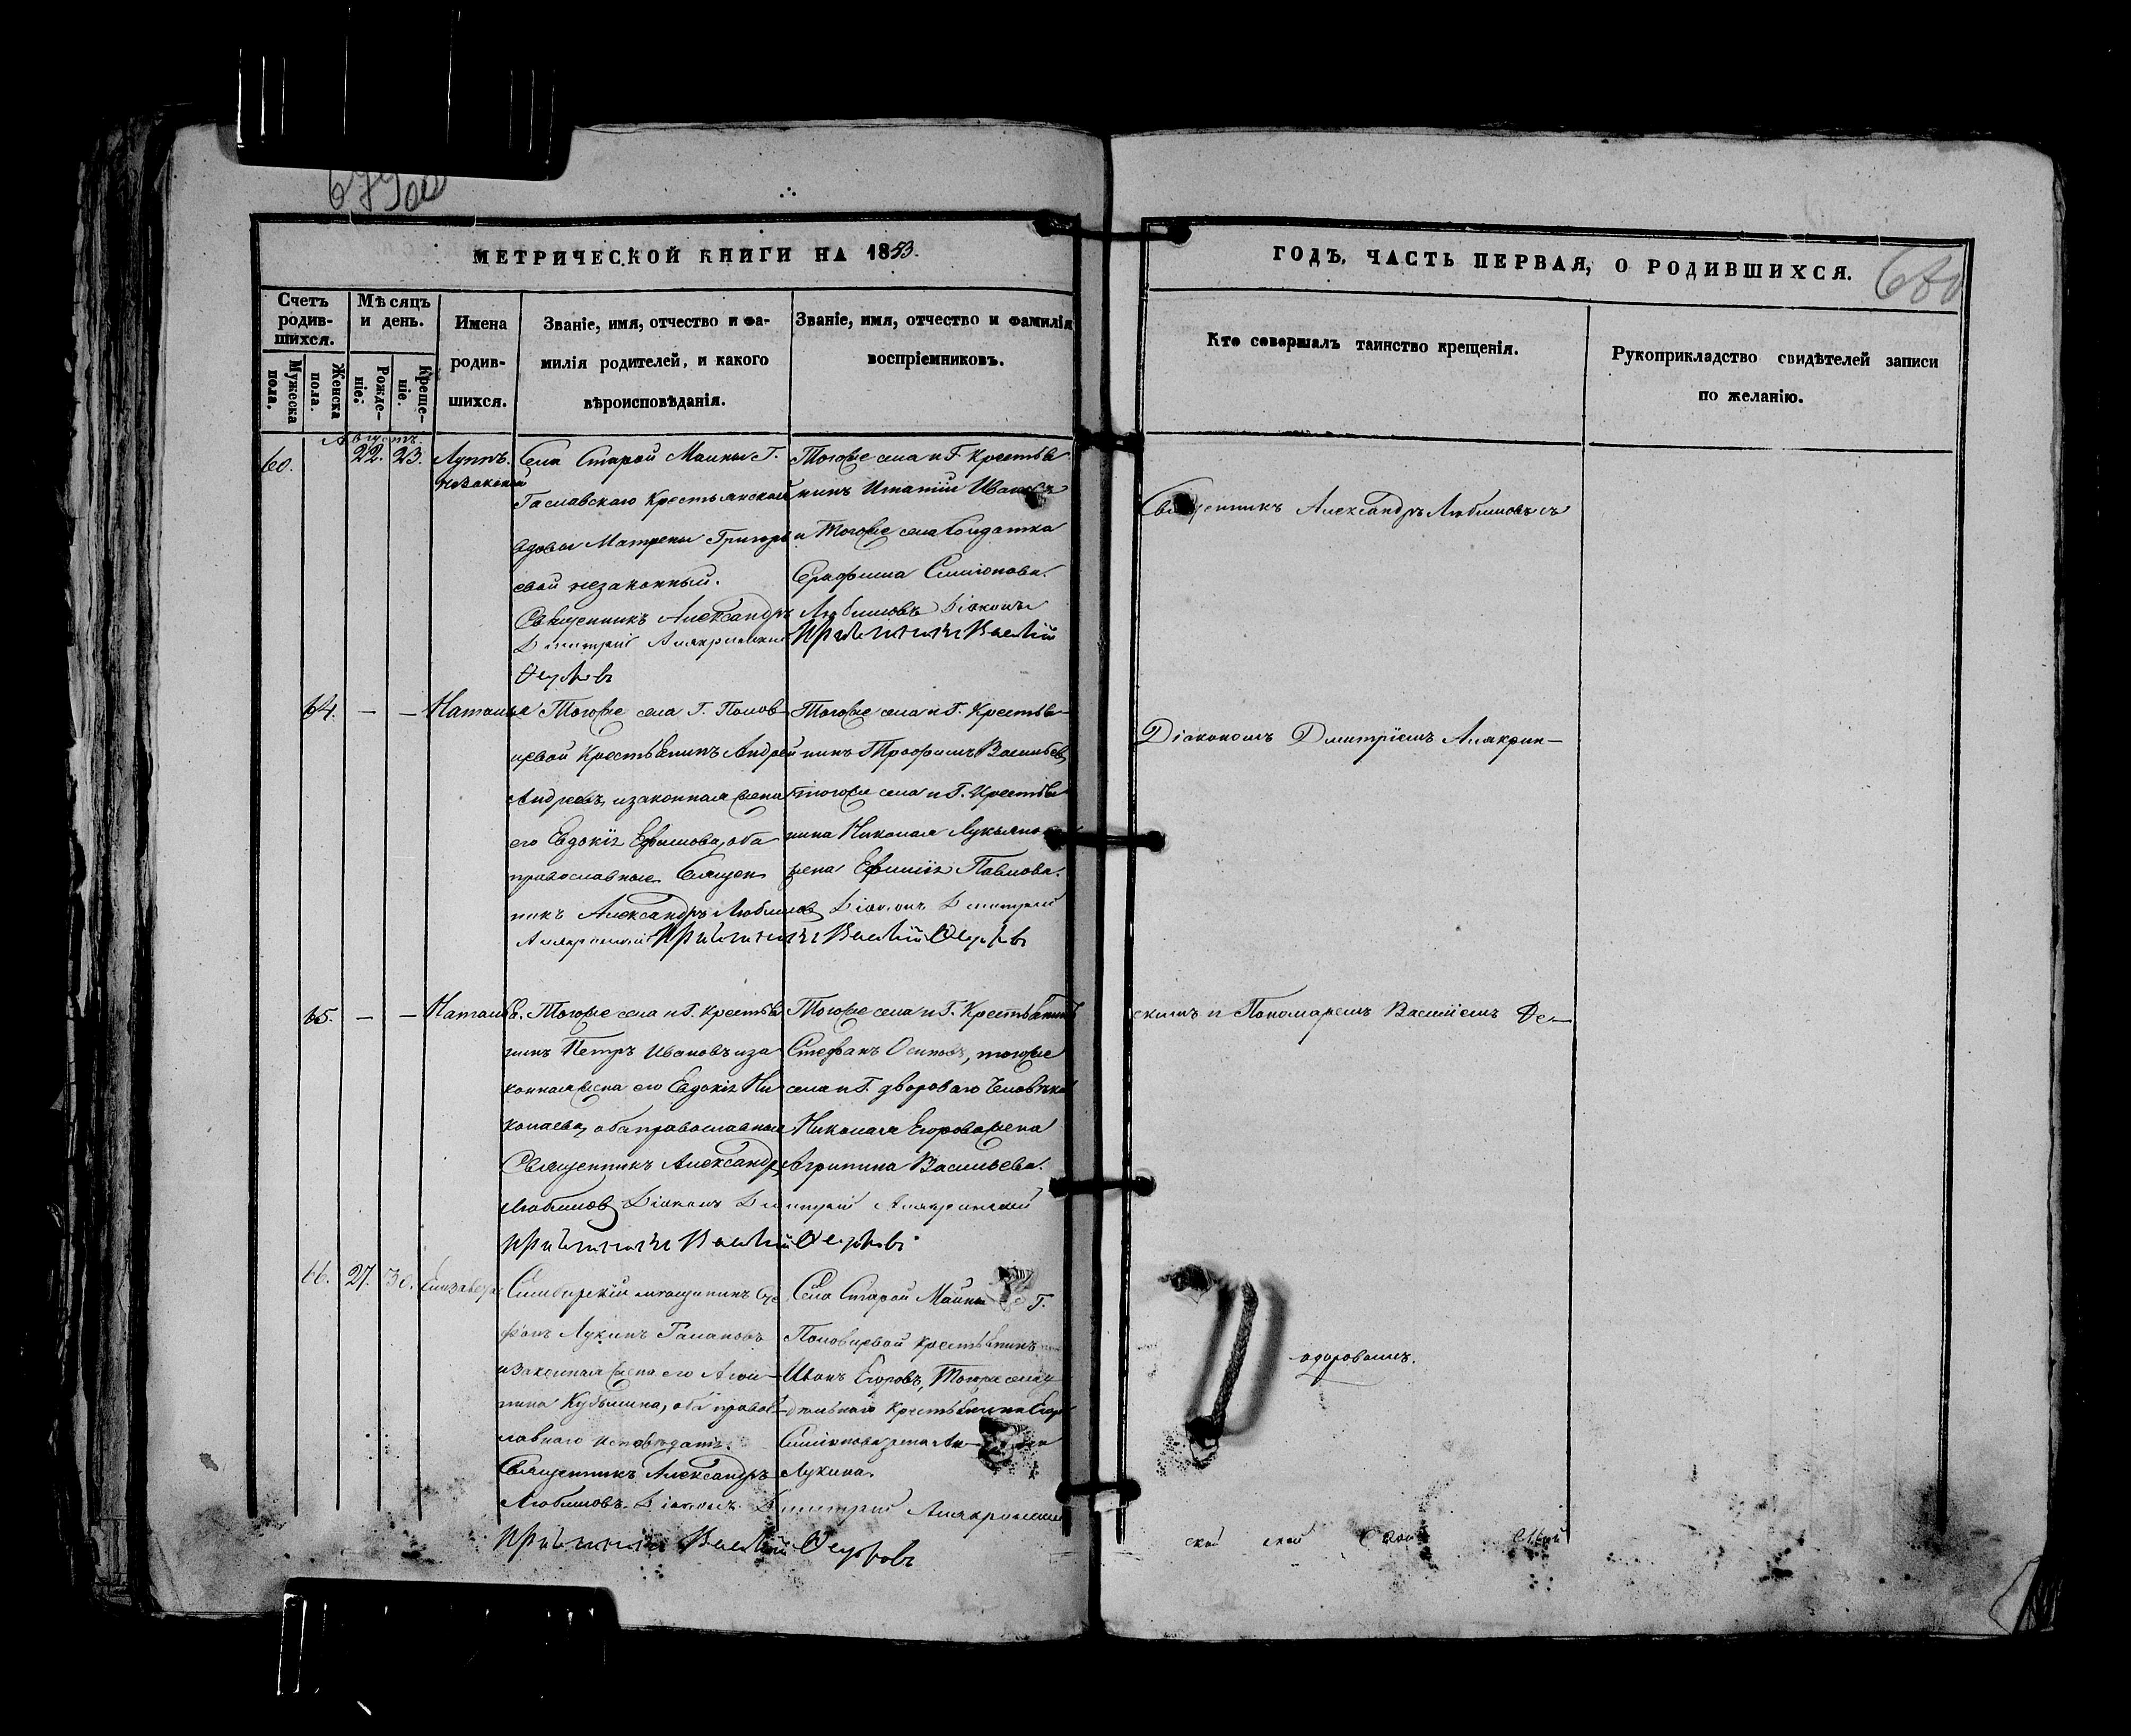 679об
МЕТРИЧЕСКОЙ КНИГИ НА 1853.
Счетъ родив-шихся.
Мѣсяцъ и день.
Имена родив-шихся.
Званіе, имя, отчество и фа-
милія родителей, и какого
вѣроисповѣданія.
Званіе, имя, отчество и фамилія
воспріемниковъ.
Мужеска пола.
Женска пола.
Рожде-ніе.
Креще-ніе.
Августъ.
60. 22. 23. Луппъ.
незаконый
Села Старой Майны Г.
крестьянской
вдовы Матрены Григорь
евой незаконный.
Священникъ Александръ Любимовъ Діаконъ
Дмитрій Алякринский Василій
Ѳедоровъ
Тогоже села и Г. Крестья
нинъ Игнатій Ивановъ
и Тогоже села Солдатка
Серафима Симіонова.
64. — — Наталья
Тогоже села Г. Полов-
цевой Крестьянинъ Андрей
Андреевъ, и законная жена
его Евдокія Ефимова, оба
православные. Священ
никъ Александръ Любимовъ Діаконъ Дмитрий
Алякринский Василій Ѳедоровъ
Тогоже села и Г. Крестья-
нинъ Трофимъ Васильевъ,
тогоже села и Г. Крестья
нина Николая Лукьянова
жена Ефимія Павлова.
65. — — Наталья.
Тогоже села и Г. Крестья
нинъ Петръ Ивановъ и за
конная жена его Евдокія Ни
колаева, оба православные
Священникъ Александръ
Любимовъ Діаконъ Дмитрій Алякринский
Василій Ѳедоровъ
Тогоже села и Г. Крестьянинъ
Стефанъ Осиповъ, тогоже
села и Г. двороваго Человѣка
Николая Егорова жена
Агрипина Васильева.
66. 27. 30. Елизавета
Симбирскій мещанинъ Сте
фанъ Лукинъ
и законная жена его
оба правос
лавнаго исповѣданія.
Священникъ Александръ
Любимовъ. Діаконъ Дмитрій Алякринский
Василій Ѳедоровъ
Села Старой Майны Г.
Половцевой крестьянинъ
Иванъ Егоровъ, Тогоже села у
дѣльнаго крестьянина
Симіонова жена
Лукина.
ГОДЪ, ЧАСТЬ ПЕРВАЯ, О РОДИВШИХСЯ.
680
Кто совершалъ таинство крещенія.
Рукоприкладство свидѣтелей записи
по желанію.
Священникъ Александръ Любимовъ съ
Діакономъ Дмитріемъ Алякрин-
скимъ и Пономаремъ Василіемъ Ѳе-
одоровымъ.